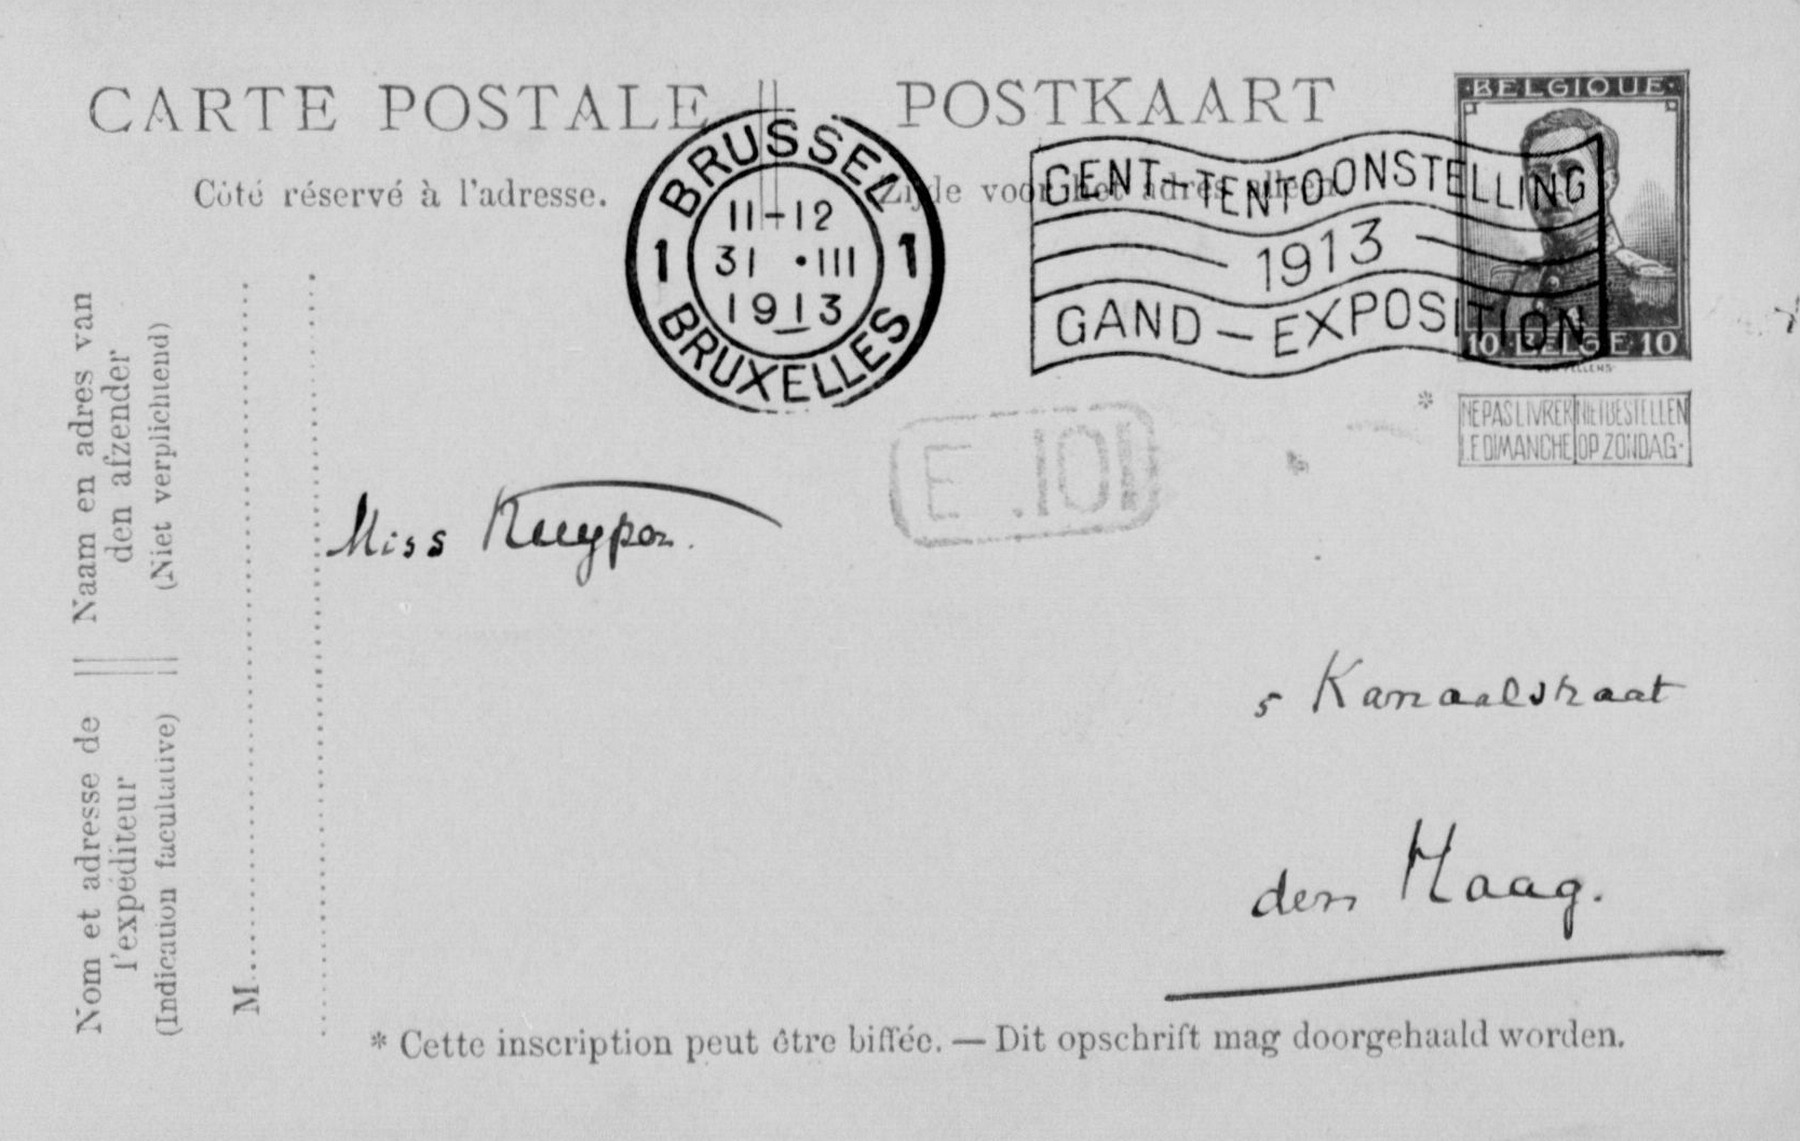 CARTE POSTALE
POSTKAART
Côté réservé à l'adresse.
Zijde voor het adres alleen.
BRUSSEL
11-12
1 31 •III 1
1913
BRUXELLES
GENT-TENTOONSTELLING
1913
GAND-EXPOSITION
·BELGIQUE·
10·BELGIE·10
NE PAS LIVRER LE DIMANCHE
NIET BESTELLEN OP ZONDAG·
*
E .101
Naam en adres van
den afzender
(Niet verplichtend)
Nom et adresse de
l'expéditeur
(Indication facultative)
M
Miss Kuyper.
5 Kanaalstraat
den Haag.
* Cette inscription peut être biffée. — Dit opschrift mag doorgehaald worden.